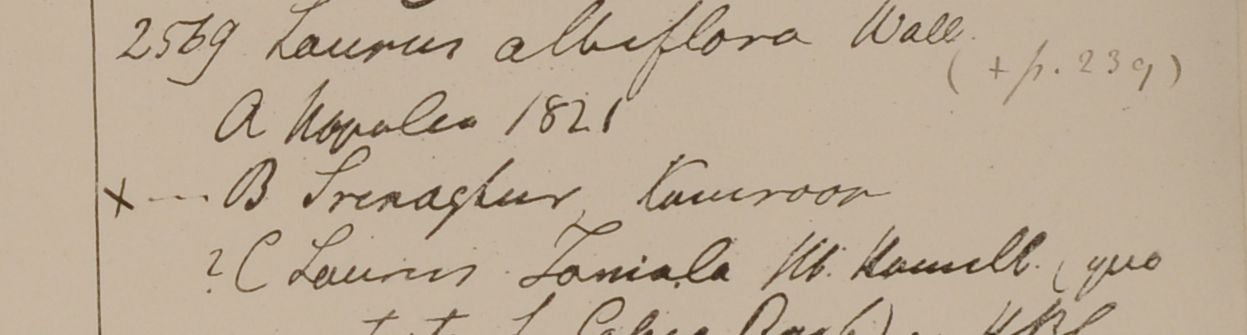 2569 Laurus albiflora Wall.
(+ p. 239)
A Napalia 1821
x --- B Srinaghur, Kamroon
? C Laurus Tomala Hb. Hamilt. (quo